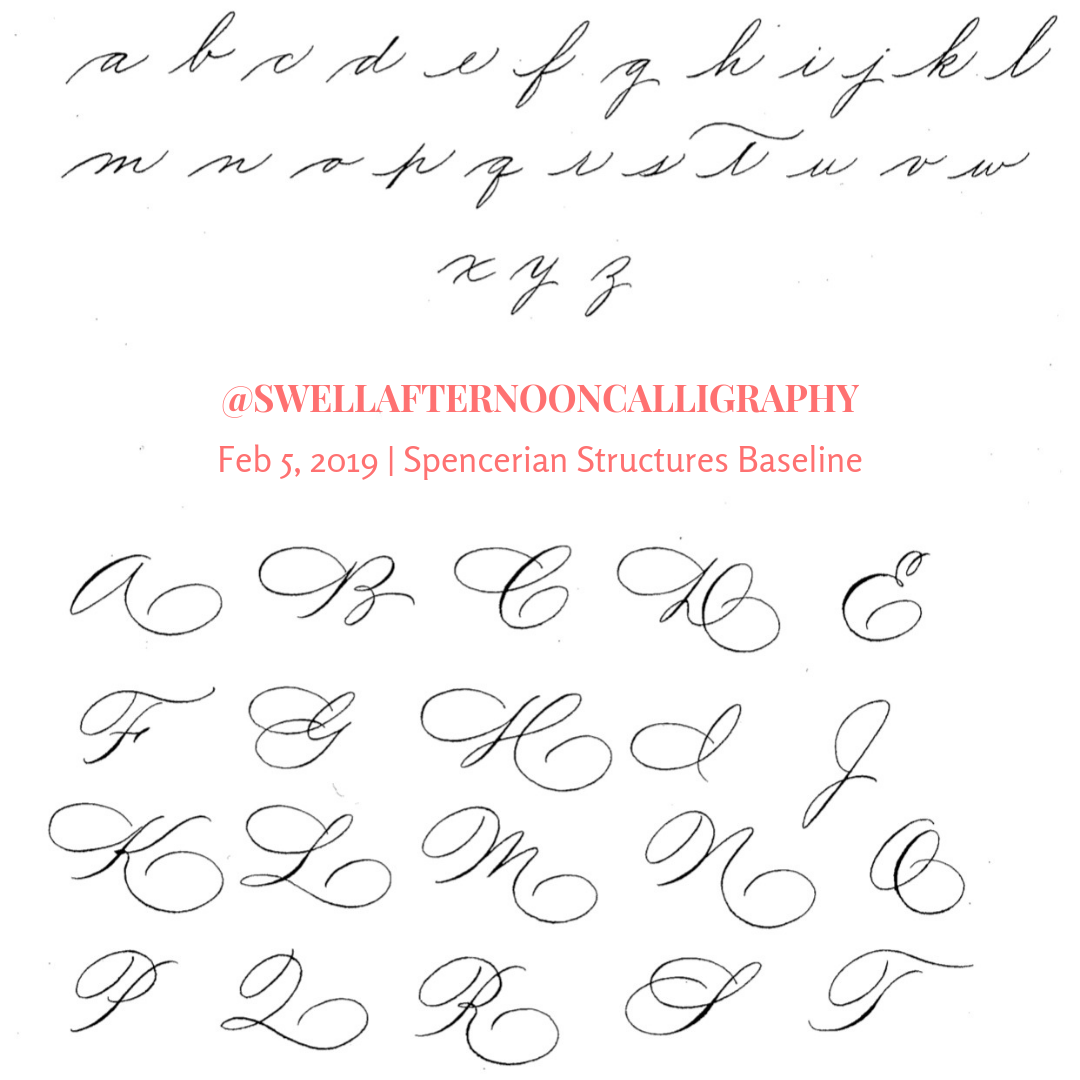 a b c d e f g h i j k l
m n o p q r s t u v w
x y z
@SWELLAFTERNOONCALLIGRAPHY
Feb 5, 2019 | Spencerian Structures Baseline
A B C D E
F G H I J
K L M N O
P Q R S T